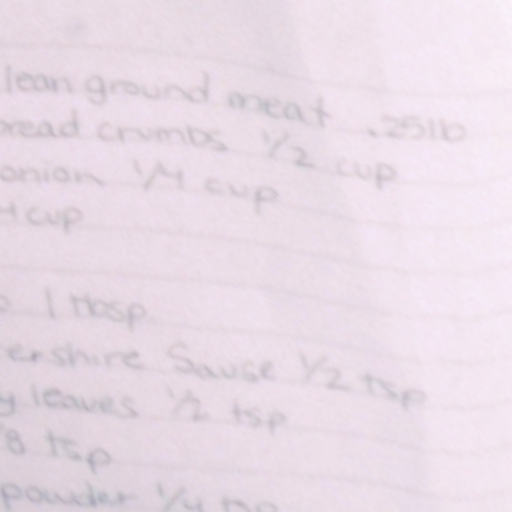 lean ground meat .25lb
read crumbs 1/2 cup
onion 1/4 cup
4 cup
1 tbsp
ershire Sause 1/2 tsp
y leaves 1/2 tsp
8 tsp
powder 1/4 tsp